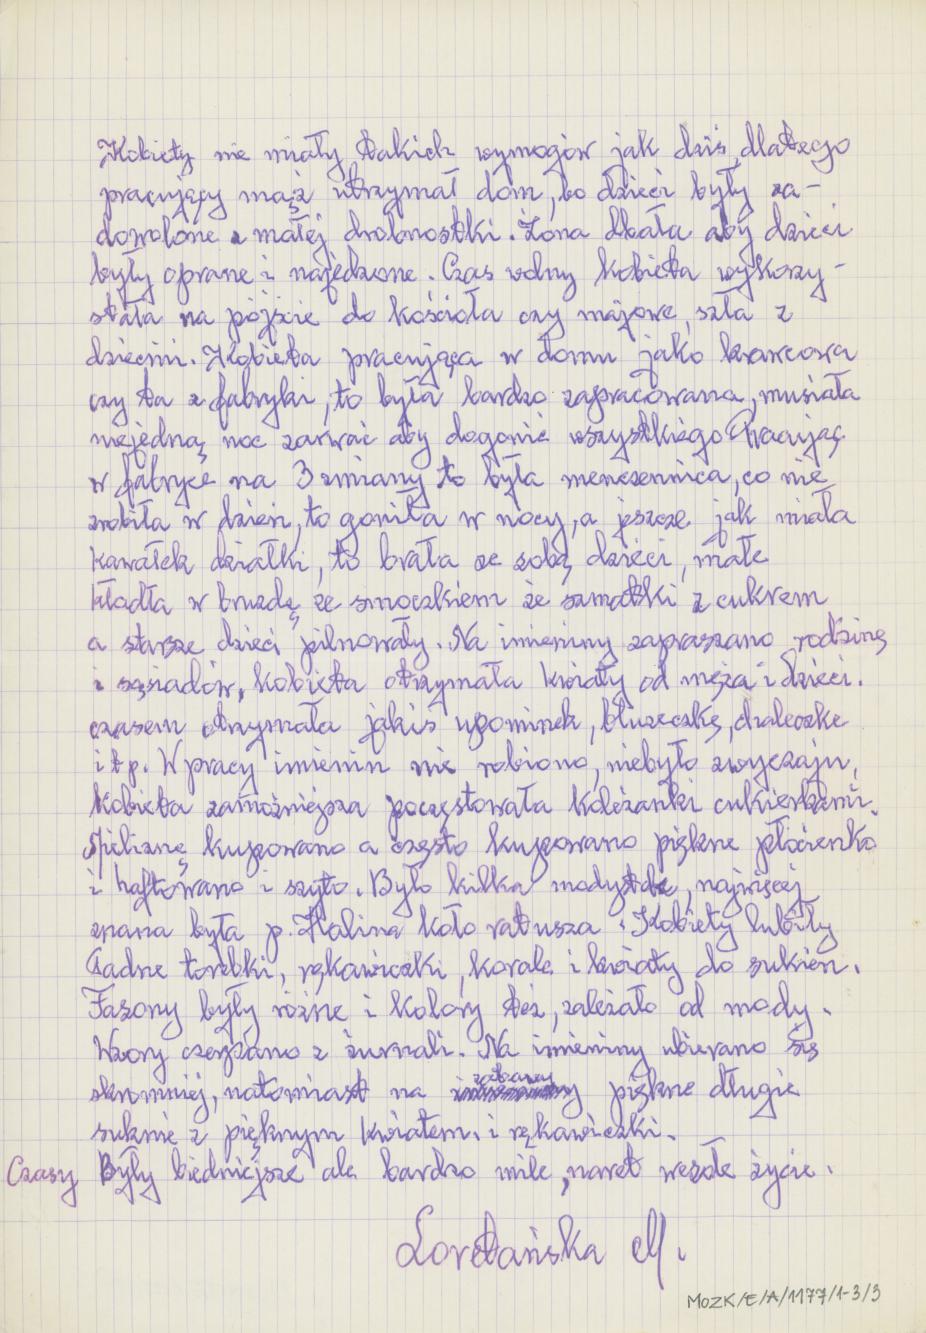 Kobiety nie miały takich wymogów jak dziś, dlatego
pracujący mąż utrzymał dom, bo dzieci były za-
dowolone z małej drobnostki. Żona dbała aby dzieci
były oprane i najedzone. Czas wolny kobieta wykorzy-
stała na pójście do kościoła czy majowe, szła z
dziećmi. Kobieta pracująca w domu jako krawcowa
czy ta z fabryki, to była bardzo zapracowana, musiała
niejedną noc zarwać aby dogonić wszystkiego Pracując
w fabryce na 3 zmiany to była menczennica, co nie
zrobiła w dzień, to goniła w nocy, a jeszcze jak miała
kawałek działki, to brała ze sobą dzieci, małe
kładła w bruzdę ze smoczkiem ze szmatki z cukrem
a starsze dzieci pilnowały. Na imieniny zapraszano rodzinę
i sąsiadów, kobieta otrzymała kwiaty od męża i dzieci.
czasem otrzymała jakiś upominek, bluzeczkę, chaleczke
i t p. W pracy imienin nie robiono, niebyło zwyczaju,
kobieta zamożniejsza poczęstowała koleżanki cukierkami.
Bieliznę kupowano a często kupowano piękne płócienko
i haftowano i szyto. Było kilka modystek, najwięcej
znana była p. Halina koło ratusza. Kobiety lubiły
ładne torebki, rękawiczki, korale i kwiaty do sukien.
Fazony były różne i kolory też, zależało od mody.
Wzory czerpano z żurnali. Na imieniny ubierano się
skromniej, natomiast na zabawy piękne długie
suknie z pięknym kwiatem i rękawiczki.
Czasy Były biedniejsze ale bardzo miłe, nawet wesołe życie.
Loretańska M.
MOZK/E/A/1177/1-3/3